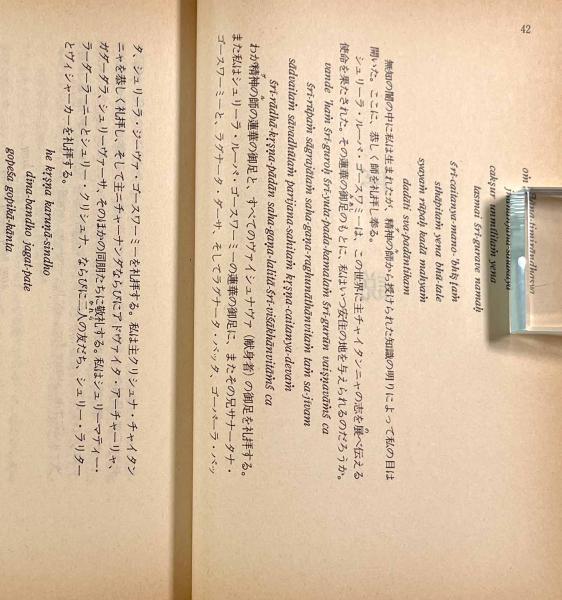 42
cakṣur unmīlitaṁ yena
tasmai śrī-gurave namaḥ
śrī-caitanya-mano-'bhīṣṭaṁ
sthāpitaṁ yena bhū-tale
svayaṁ rūpaḥ kadā mahyaṁ
dadāti sva-padāntikam
無知の闇の中に私は生まれたが、精神の師から授けられた知識の明りによって私の目は
開いた。ここに、恭しく師を礼拝し奉る。
シュリーラ・ルーパ・ゴースワーミーは、この世界に主チャイタンニャの志を展べ伝える
使命を果たされた。その蓮華の御足のもとに、私はいつ安住の地を与えられるのだろうか。
vande 'haṁ śrī-guroḥ śrī-yuta-pada-kamalaṁ śrī-gurūn vaiṣṇavāṁś ca
śrī-rūpaṁ sāgrajātaṁ saha-gaṇa-raghunāthānvitaṁ taṁ sa-jīvam
sādvaitaṁ sāvadhūtaṁ parijana-sahitaṁ kṛṣṇa-caitanya-devaṁ
śrī-rādhā-kṛṣṇa-pādān saha-gaṇa-lalitā-śrī-viśākhānvitāṁś ca
わが精神の師の蓮華の御足と、すべてのヴァイシュナヴァ（献身者）の御足を礼拝する。
また私はシュリーラ・ルーパ・ゴースワーミーの蓮華の御足に、またその兄サナータナ・
ゴースワーミーと、ラグナータ・ダーサ、そしてラグナータ・バッタ、ゴーパーラ・バッ
タ、シュリーラ・ジーヴァ・ゴースワーミーを礼拝する。私は主クリシュナ・チャイタン
ニャを恭しく礼拝し、そして主ニチャーナンダならびにアドヴァイタ・アーチャーリャ、
ガダーダラ、シュリーヴァーサ、そのほかの同朋たちに敬礼する。私はシュリーマティー・
ラーダーラーニーとシュリー・クリシュナ、ならびに二人の友だち、シュリー・ラリター
とヴィシャーカーを礼拝する。
he kṛṣṇa karuṇā-sindho
dīna-bandho jagat-pate
gopeśa gopikā-kānta